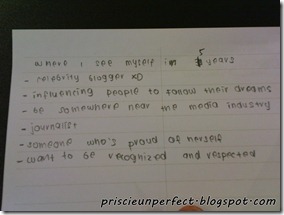 where I see myself in 5 years
- celebrity blogger xD
- influencing people to follow their dreams
- be somewhere near the media industry
- journalist
- someone who's proud of herself
- want to be recognized and respected
priscieunperfect.blogspot.com